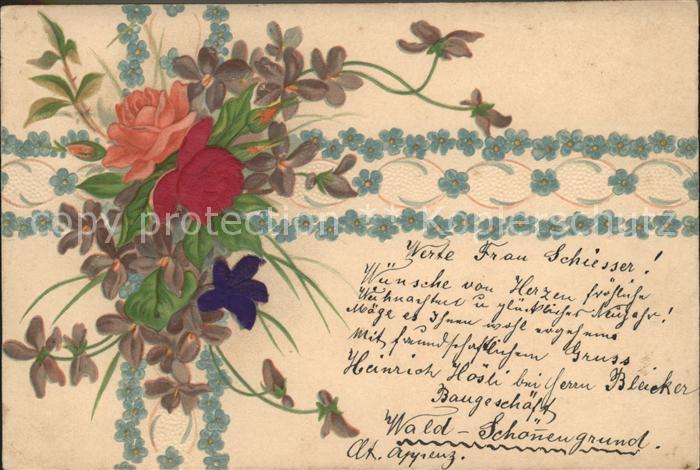 copy protection Kopierschutz
Werte Frau Schiesser!
Wünsche von Herzen fröhliche
Weihnachten u glückliches Neujahr!
Möge es Ihnen wohl ergehens
Mit freundschaftlichem Gruss
Heinrich Hösli bei Herrn Bleicker
Baugeschäft
Wald - Schönengrund.
Ct. Appenz.